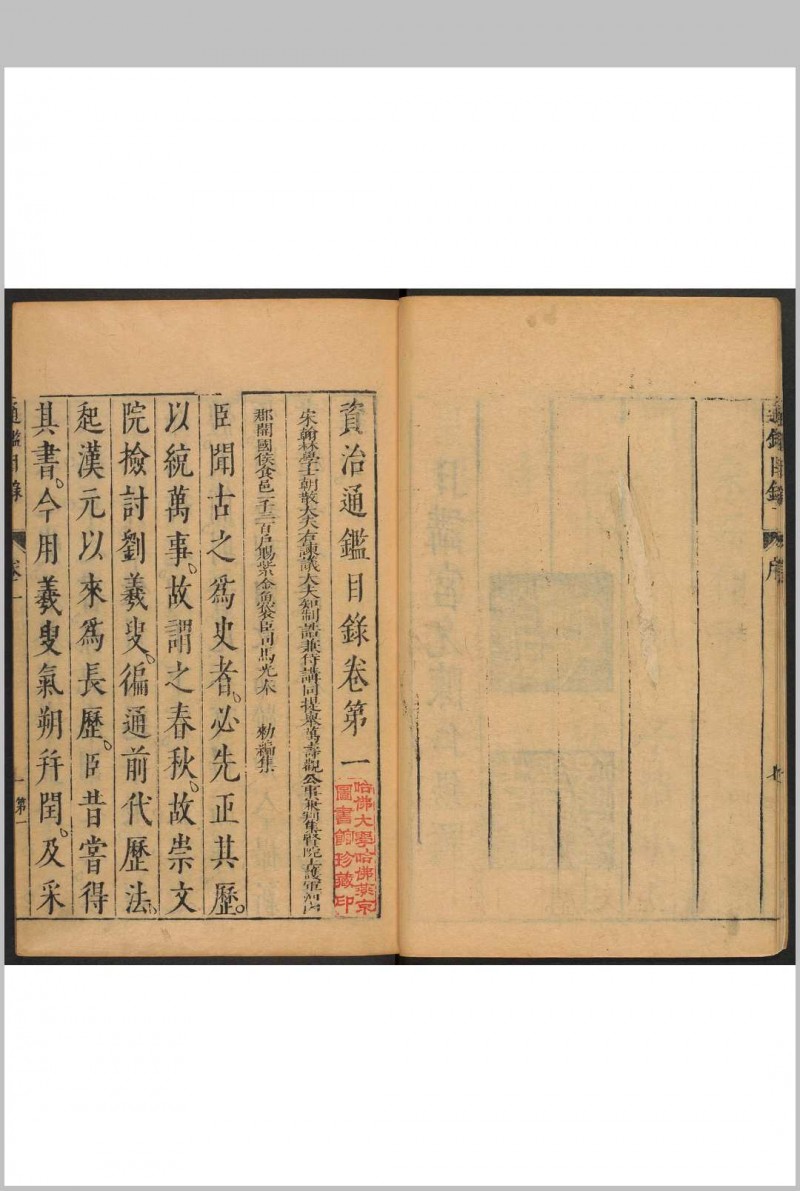 通鑑目錄
序
資治通鑑目錄卷第一
宋翰林學士朝散大夫右諫議大夫知制誥兼侍講同提舉萬壽觀公事兼判集賢院上護軍河內
郡開國侯食邑一千三百戶賜紫金魚袋臣司馬光奉　勑編集
臣聞古之爲史者。必先正其歷。
以統萬事。故謂之春秋。故崇文
院檢討劉羲叟。徧通前代歷法。
起漢元以來爲長歷。臣昔嘗得
其書。今用羲叟氣朔幷閏。及采
通鑑目錄
卷一
一
第一
哈佛大學哈佛燕京
圖書館珍藏印